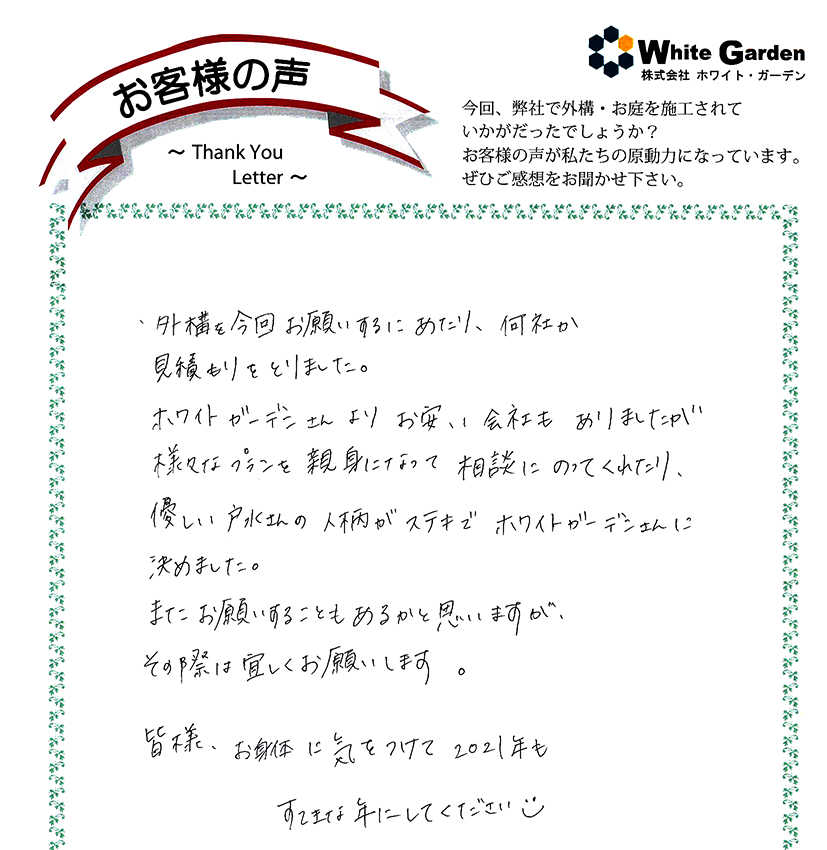 お客様の声
～ Thank You
Letter ～
White Garden
株式会社 ホワイト・ガーデン
今回、弊社で外構・お庭を施工されて
いかがだったでしょうか？
お客様の声が私たちの原動力になっています。
ぜひご感想をお聞かせ下さい。
、外構を今回お願いするにあたり、何社か
見積もりをとりました。
ホワイトガーデンさんよりお安い会社もありましたが
様々なプランを親身になって相談にのってくれたり、
優しい戸水さんの人柄がステキでホワイトガーデンさんに
決めました。
またお願いすることもあるかと思いますが、
その際は宜しくお願いします。
皆様、お身体に気をつけて2021年も
すてきな年にしてください